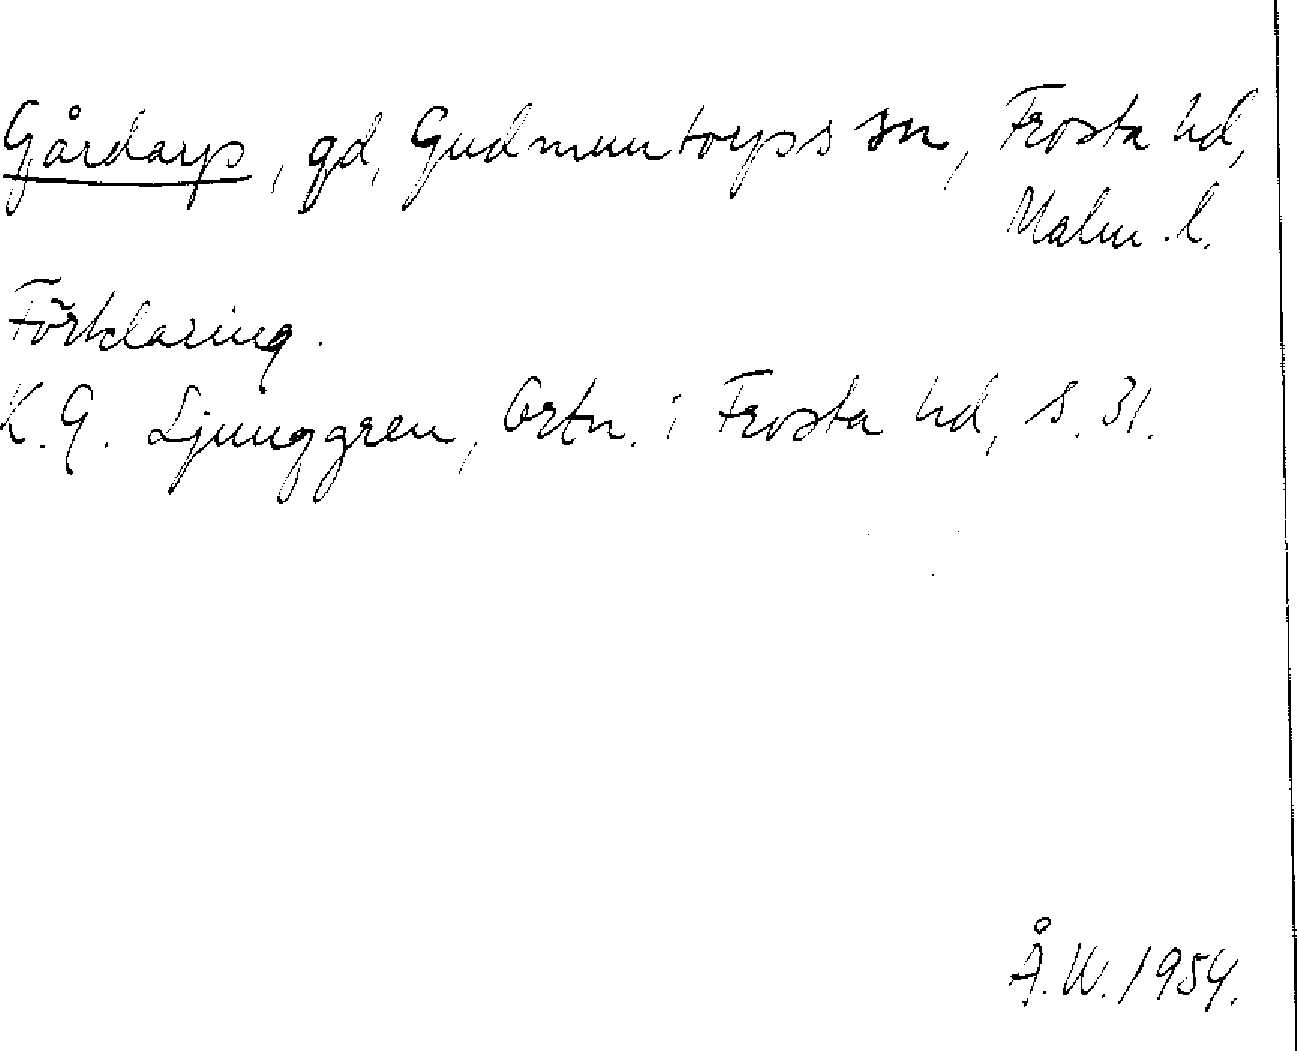 Gårdarp, gd, Gudmuntorps sn, Frosta hd,
Malm. l.
Förklaring.
K.G. Ljunggren, Ortn. i Frosta hd, s. 31.
Å.W. 1954.